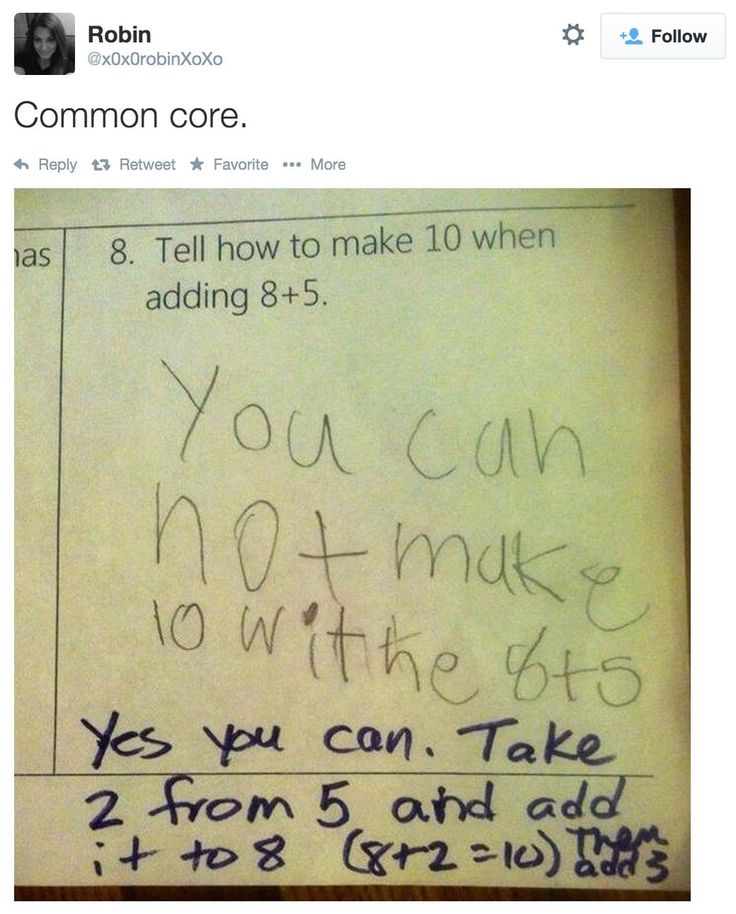 Robin
@x0x0robinXoXo
Follow
Common core.
Reply Retweet Favorite More
as
8. Tell how to make 10 when
adding 8+5.
You can
not make
10 withe 8+5
Yes you can. Take
2 from 5 and add
it to 8 (8+2=10) Then
add 3